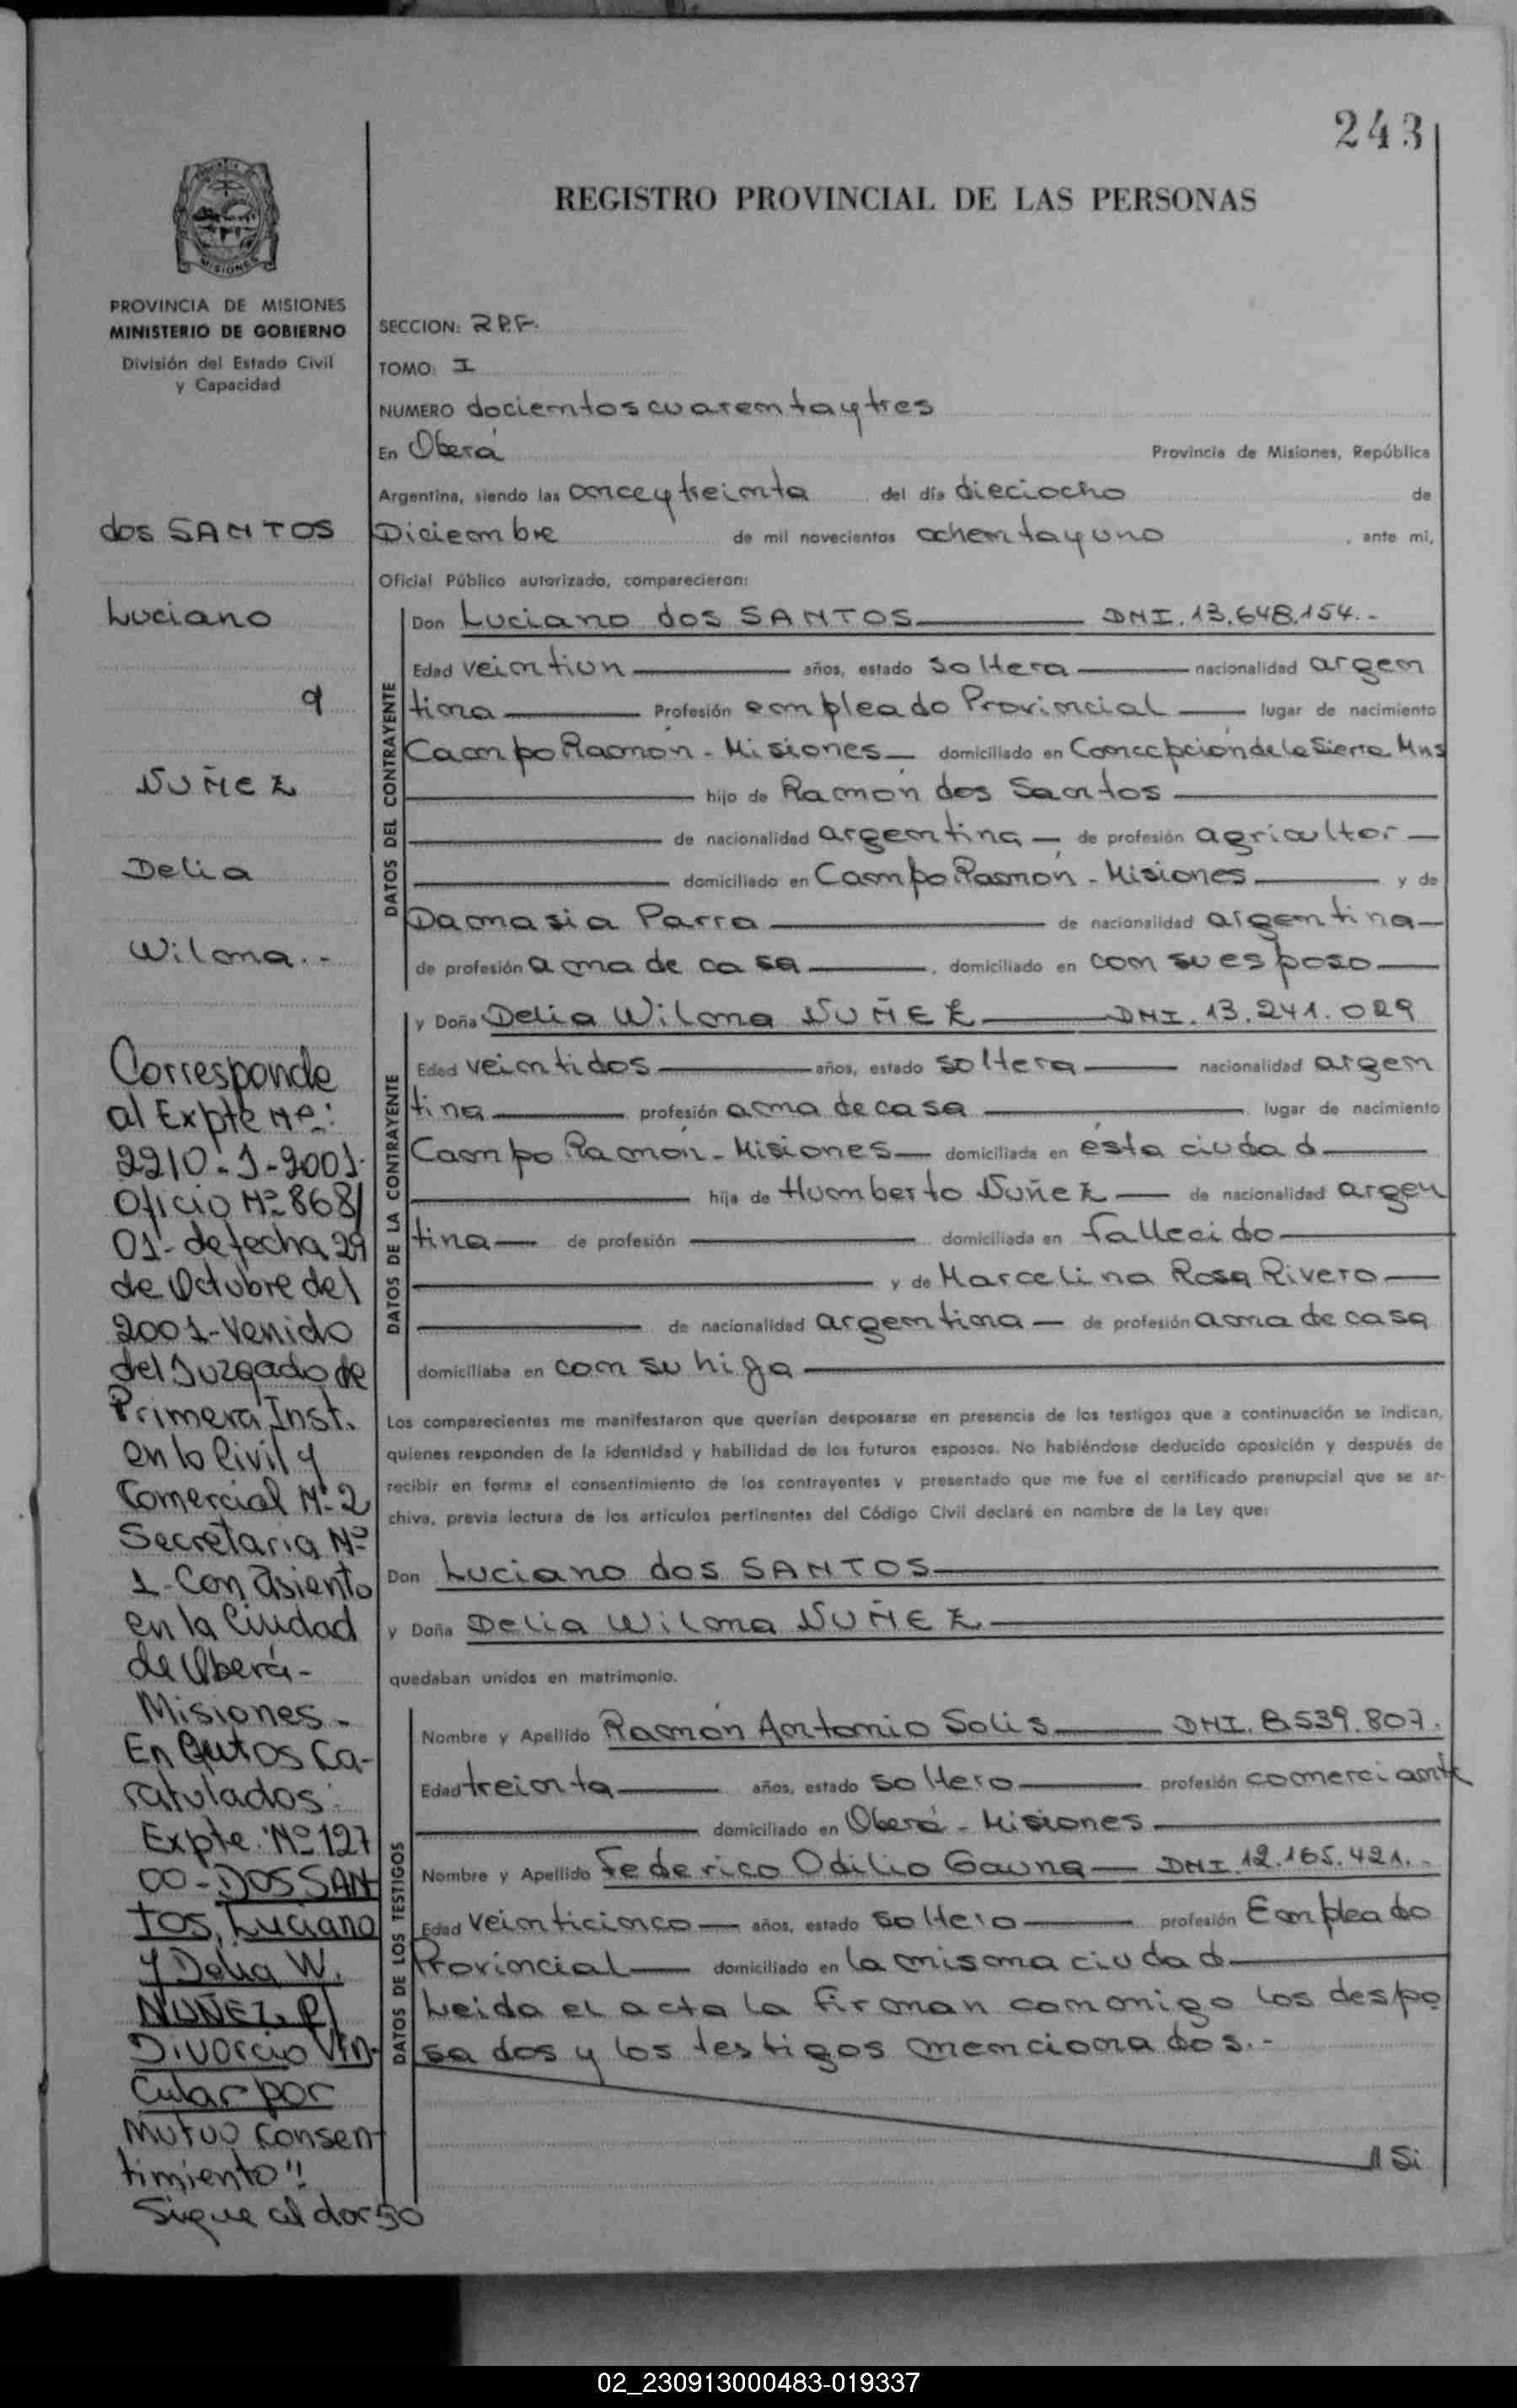 243
REGISTRO PROVINCIAL DE LAS PERSONAS
MISIONES
PROVINCIA DE MISIONES
MINISTERIO DE GOBIERNO
División del Estado Civil
y Capacidad
dos SANTOS
Luciano
y
NUÑEZ
Delia
Wilma.-
Corresponde
al Expte Nº:
2210-J-2001.
Oficio Nº 868/
01- de fecha 29
de Octubre del
2001- Venido
del Juzgado de
Primera Inst.
en lo Civil y
Comercial Nº 2
Secretaria Nº
1- Con asiento
en la Ciudad
de Oberá-
Misiones-
En Autos Ca-
ratulados:
Expte. "Nº 127
00- DOS SAN
TOS, Luciano
y Delia W.
NUÑEZ P/
Divorcio Vin-
cular por
Mutuo Consen-
timiento"!
Sigue al dorso
SECCION: R.P.F.
TOMO: I
NUMERO docientos cuarentaytres
En Oberá Provincia de Misiones, República
Argentina, siendo las onceytreinta del día dieciocho de
Diciembre de mil novecientos ochentayuno , ante mi,
Oficial Público autorizado, comparecieron:
DATOS DEL CONTRAYENTE
Don Luciano dos SANTOS DNI. 13.648.154.-
Edad veintiun años, estado soltera nacionalidad argen
tina Profesión empleado Provincial lugar de nacimiento
Campo Ramón - Misiones domiciliado en Concepción de la Sierra Mns
hijo de Ramón dos Santos
de nacionalidad argentina de profesión agricultor
domiciliado en Campo Ramón - Misiones y de
Damasia Parra de nacionalidad argentina
de profesión ama de casa , domiciliado en con su esposo
DATOS DE LA CONTRAYENTE
y Doña Delia Wilma NUÑEZ DNI. 13.241.029
Edad veintidos años, estado soltera nacionalidad argen
tina profesión ama de casa lugar de nacimiento
Campo Ramón - Misiones domiciliada en ésta ciudad
hija de Humberto Nuñez de nacionalidad argen
tina de profesión domiciliada en fallecido
y de Marcelina Rosa Rivero
de nacionalidad argentina de profesión ama de casa
domiciliaba en con su higa
Los comparecientes me manifestaron que querían desposarse en presencia de los testigos que a continuación se indican,
quienes responden de la identidad y habilidad de los futuros esposos. No habiéndose deducido oposición y después de
recibir en forma el consentimiento de los contrayentes y presentado que me fue el certificado prenupcial que se ar-
chiva, previa lectura de los artículos pertinentes del Código Civil declaré en nombre de la Ley que:
Don Luciano dos SANTOS
y Doña Delia Wilma NUÑEZ
quedaban unidos en matrimonio.
DATOS DE LOS TESTIGOS
Nombre y Apellido Ramón Antonio Solis DNI. 8.539.807.
Edad treinta años, estado soltero profesión comerciante
domiciliado en Oberá - Misiones
Nombre y Apellido Federico Odilio Gauna DNI. 12.165.421.-
Edad veinticinco años, estado soltero profesión Empleado
Provincial domiciliado en la misma ciudad
Leida el acta la firman conmigo los despo
sados y los testigos mencionados.-
//Si
02_230913000483-019337